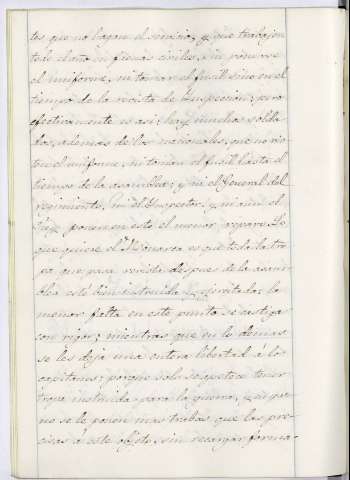 tes que no hagan el servicio; y que trabajen
todo el año en faenas civiles, sin ponerse
el uniforme, ni tomar el fusil sino en el
tiempo de la revista de Inspeccion; pero
efectivamente es así; hay muchos solda-
dos, ademas de los nacionales, que no vis-
ten el uniforme, ni toman el fusil hasta el
tiempo de la asamblea; y ni el General del
regimiento, ni el Inspector, y ni aun el
Rey ponen en esto el menor reparo. Lo
que quiere el Monarca es que toda la tro-
pa que pasa revista despues de la asam-
blea esté bien instruida y ejercitada; la
menor falta en este punto se castiga
con rigor; mientras que en lo demas
se les deja una entera libertad á los
capitanes; porque solo se apetece tener
tropa instruida para la guerra, y así
no se le ponen mas trabas que las pre-
cisas á este objeto, sin recargar forma-